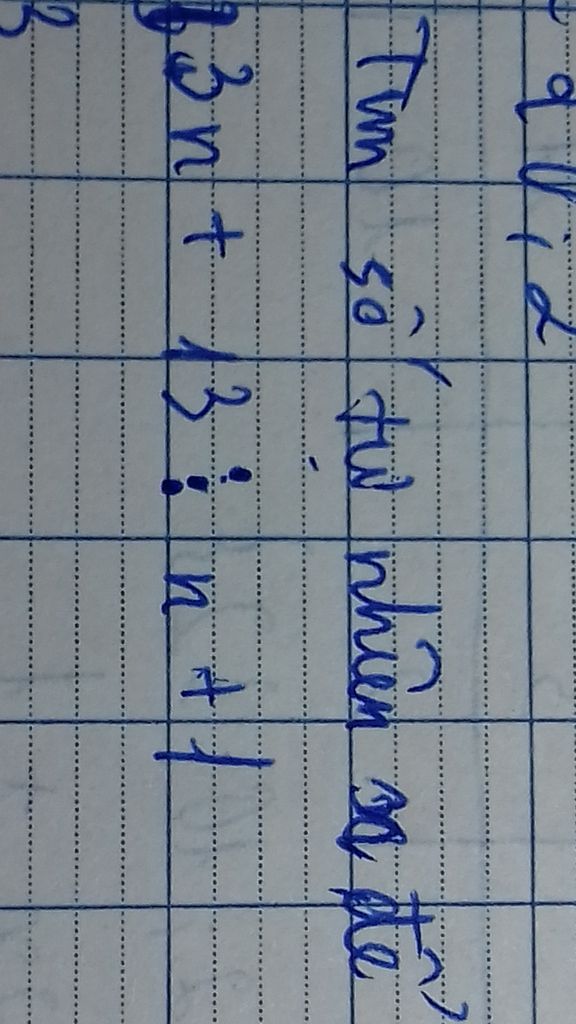 Tìm số tự nhiên n để
3n + 13 ⋮ n + 1